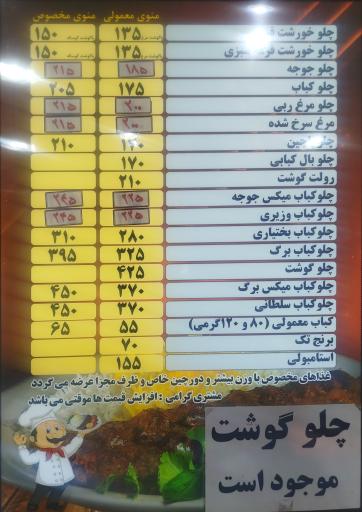 منوی معمولی منوی مخصوص
چلو خورشت ۱۳۵ ۱۵۰
چلو خورشت ۱۳۵ ۱۵۰
چلو جوجه ۱۸۵ ۲۱۵
چلو کباب ۱۷۵ ۲۰۵
چلو مرغ ربی ۲۰۰ ۲۱۵
مرغ سرخ شده ۲۰۰ ۲۱۵
۲۱۰
چلو بال کبابی ۱۷۰
رولت گوشت ۲۱۰
چلوکباب میکس جوجه ۲۲۵ ۲۴۵
چلوکباب وزیری ۲۲۵ ۲۴۵
چلوکباب بختیاری ۲۸۰ ۳۱۰
چلوکباب برگ ۳۲۵ ۳۹۵
چلو گوشت ۴۲۵
چلوکباب میکس برگ ۳۷۰ ۴۵۰
چلوکباب سلطانی ۳۷۰ ۴۵۰
کباب معمولی (۸۰ و ۱۲۰گرمی) ۵۵ ۶۵
برنج تک ۷۰
استامبولی ۱۵۵
غذاهای مخصوص با وزن بیشتر و دورچین خاص و ظرف مجزا عرضه می گردد
مشتری گرامی : افزایش قیمت ها موقتی می باشد
چلو گوشت
موجود است